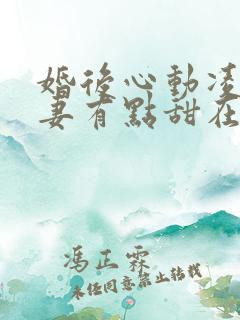 婚後心動凌
妻有點甜在
馮正霖
未经同意禁止转载